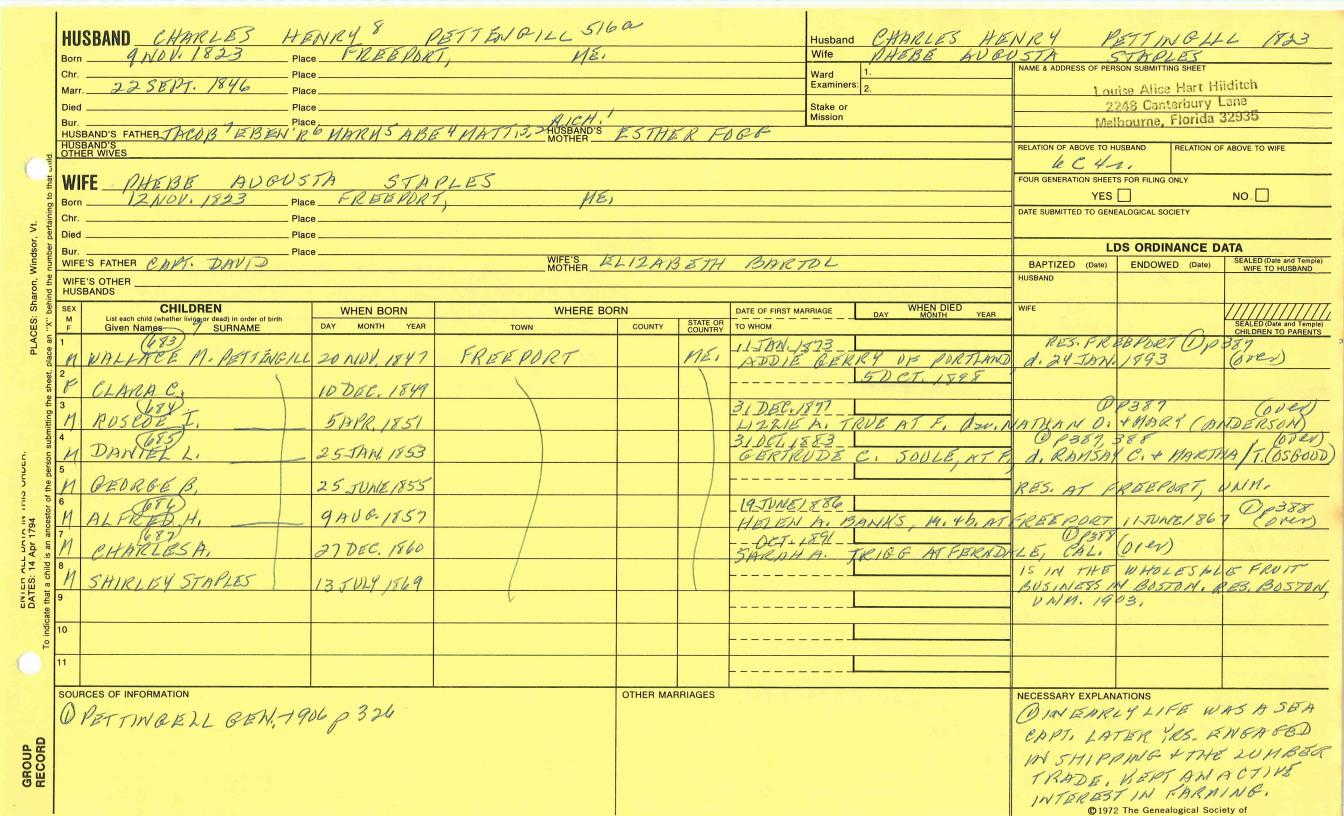 HUSBAND CHARLES HENRY 8 PETTENGILL 516a
Born 9 NOV. 1823 Place FREEPORT, ME.
Chr. Place
Marr. 22 SEPT. 1846 Place
Died Place
Bur. Place
HUSBAND'S FATHER JACOB 7 EBEN'R 6 MARK 5 ABE 4 MATT. 3, 2 RICH. 1 HUSBAND'S MOTHER ESTHER FOGG
HUSBAND'S OTHER WIVES
WIFE PHEBE AUGUSTA STAPLES
Born 12 NOV. 1823 Place FREEPORT, ME.
Chr. Place
Died Place
Bur. Place
WIFE'S FATHER CAPT. DAVID WIFE'S MOTHER ELIZABETH BARTOL
WIFE'S OTHER HUSBANDS
Husband CHARLES HENRY PETTINGILL 1823
Wife PHEBE AUGUSTA STAPLES
Ward Examiners: 1.
2.
Stake or Mission
NAME & ADDRESS OF PERSON SUBMITTING SHEET
Louise Alice Hart Hilditch
2248 Canterbury Lane
Melbourne, Florida 32935
RELATION OF ABOVE TO HUSBAND RELATION OF ABOVE TO WIFE
6C4r.
FOUR GENERATION SHEETS FOR FILING ONLY
YES NO
DATE SUBMITTED TO GENEALOGICAL SOCIETY
LDS ORDINANCE DATA
BAPTIZED (Date) ENDOWED (Date) SEALED (Date and Temple) WIFE TO HUSBAND
HUSBAND
WIFE
SEALED (Date and Temple) CHILDREN TO PARENTS
SEX M F CHILDREN WHEN BORN WHERE BORN DATE OF FIRST MARRIAGE WHEN DIED
List each child (whether living or dead) in order of birth
Given Names 9 SURNAME DAY MONTH YEAR TOWN COUNTY STATE OR COUNTRY TO WHOM DAY MONTH YEAR
1 (683) 11 JAN. 1873 RES. FREEPORT ① p387
M WALLACE M. PETTENGILL 20 NOV. 1847 FREEPORT ME. ADDIE GERRY OF PORTLAND, d. 24 JAN. 1893 (over)
2 5 OCT. 1898
F CLARA C. 10 DEC. 1849
3 (684) 31 DEC. 1877 ① P387 (over)
M ROSCOE I. 5 APR. 1851 LIZZIE A. TRUE AT F. dau. NATHAN O. + MARY (ANDERSON)
4 (685) 31 OCT. 1883 ① P387, 388 (over)
M DANIEL L. 25 JAN. 1853 GERTRUDE C. SOULE, AT F, d. RAMSAY C. + MARTHA T. (OSGOOD)
5
M GEORGE B. 25 JUNE 1855 RES. AT FREEPORT, UNM.
6 (686) 19 JUNE 1886 ① p388
M ALFRED H. 9 AUG. 1857 HELEN A. BANKS, M. 4b. AT FREEPORT 11 JUNE 1867 (over)
7 (687) OCT. 1891 ① P388
M CHARLES A. 27 DEC. 1860 SARAH A. TRIGG AT FERNDALE, CAL. (over)
8 IS IN THE WHOLESALE FRUIT
M SHIRLEY STAPLES 13 JULY 1869 BUSINESS IN BOSTON. RES. BOSTON,
9 UNM. 1903.
10
11
SOURCES OF INFORMATION
① PETTINGELL GEN. 1906 p 326
OTHER MARRIAGES
NECESSARY EXPLANATIONS
① IN EARLY LIFE WAS A SEA
CAPT. LATER YRS. ENGAGED
IN SHIPPING + THE LUMBER
TRADE. KEPT AN ACTIVE
INTEREST IN FARMING.
©1972 The Genealogical Society of
PLACES: Sharon, Windsor, Vt.
To indicate that a child is an ancestor of the person submitting the sheet, place an "X" behind the number pertaining to that child.
ENTER ALL DATA IN THIS ORDER:
DATES: 14 Apr 1794
GROUP RECORD